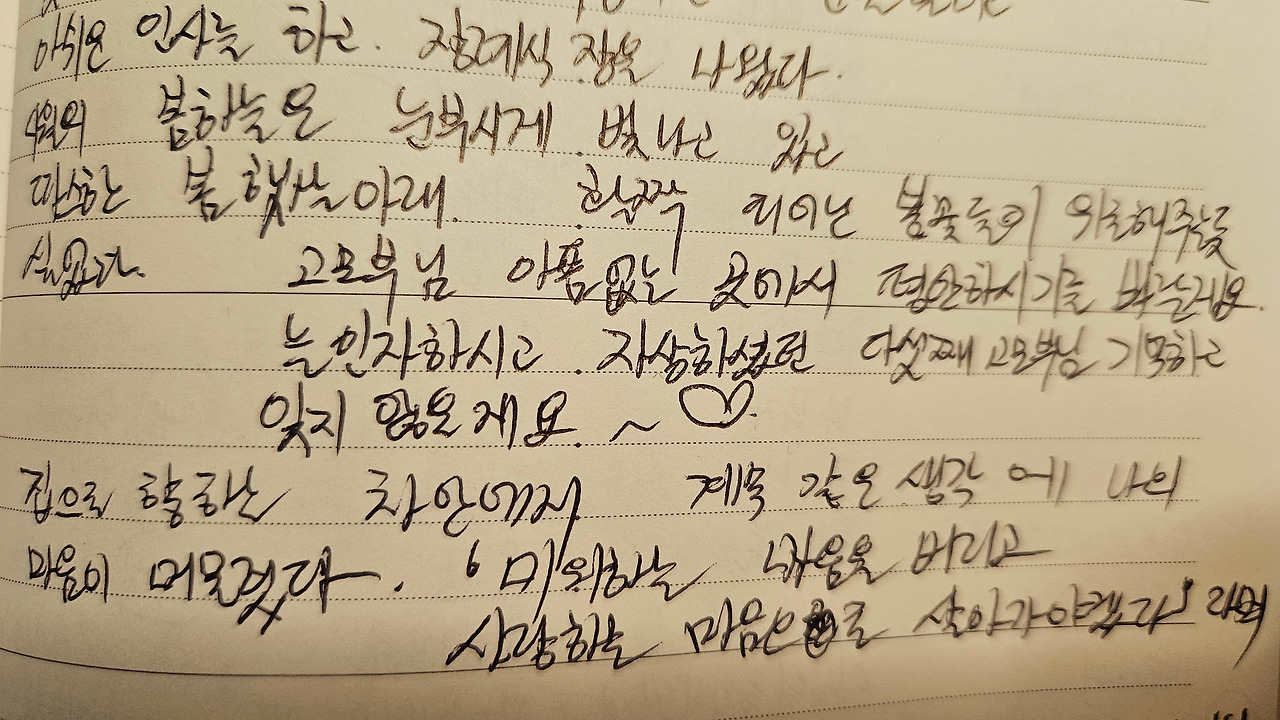 아쉬운 인사를 하고. 장례식 장을 나왔다.
4월의 봄하늘은 눈부시게 빛나고 있고
따스한 봄 햇살 아래. 활짝 피어난 봄꽃들이 위로해주는듯
싶었다. 고모부님 아픔 없는 곳에서 평안하시기를 바랄게요.
늘 인자하시고 자상하셨던 다섯째 고모부님 기억하고
잊지 않을게요. ~ ♡
집으로 향하는 차안에서 계속 같은 생각 에 나의
마음이 머물렀다. ‘미워하는 마음을 버리고
사랑하는 마음으로 살아가야겠다’ 라며